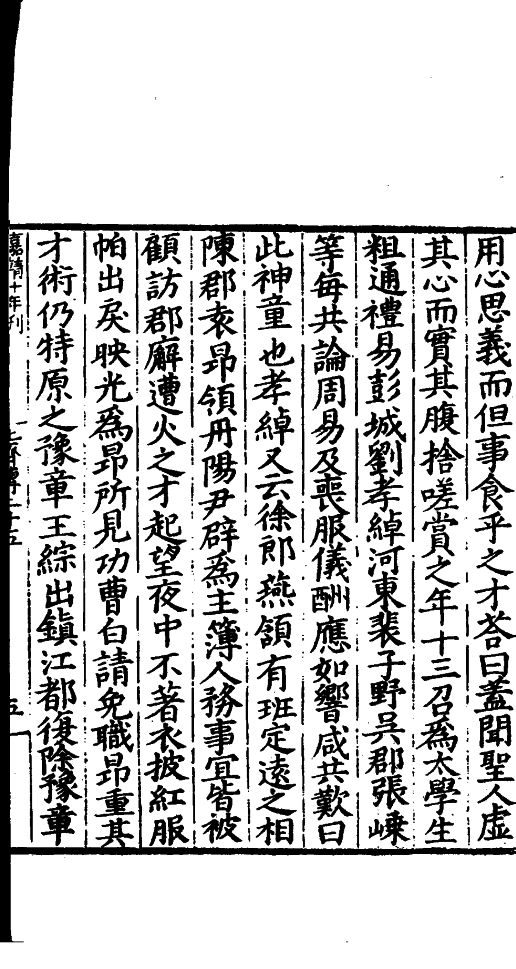 用心思義而但事食乎之才荅曰蓋聞聖人虛
其心而實其腹捨嗟賞之年十三召爲太學生
粗通禮易彭城劉孝綽河東裴子野吳郡張嵊
等每共論周易及喪服儀酬應如響咸共歎曰
此神童也孝綽又云徐郎燕頷有班定遠之相
陳郡袁昂領丹陽尹辟爲主簿人務事宜皆被
顧訪郡廨遭火之才起望夜中不著衣披紅服
帕出戾映光爲昂所見功曹白請免職昂重其
才術仍特原之豫章王綜出鎭江都復除豫章
嘉靖十年刊
五